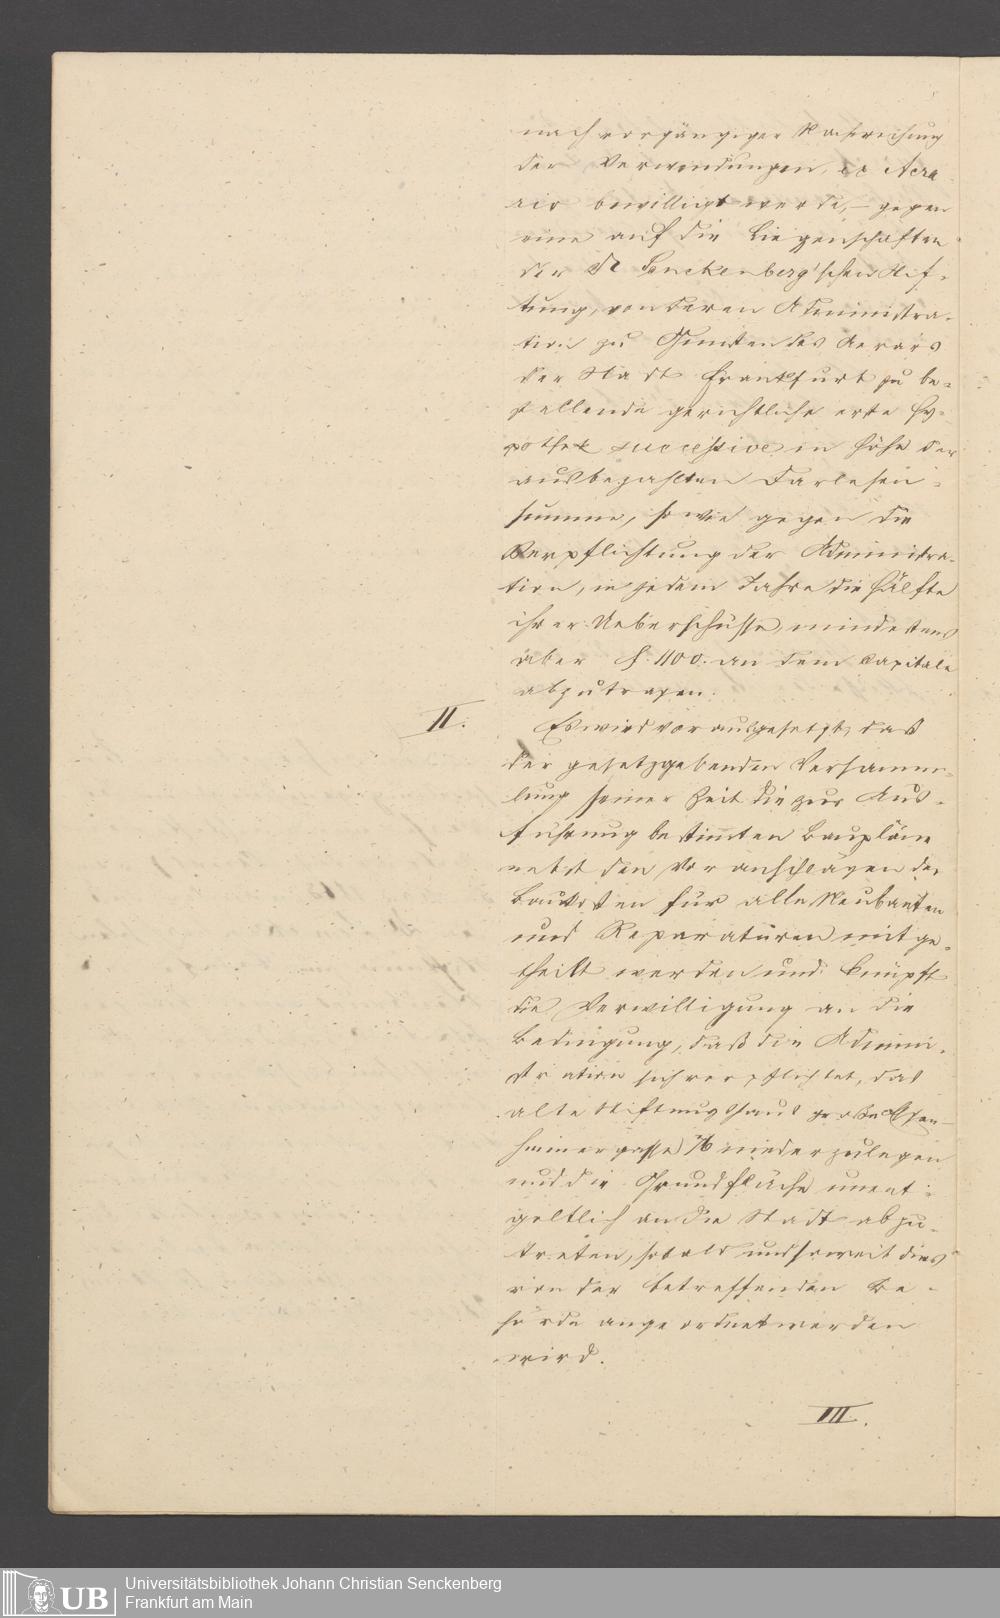 nach vorgängiger Nachweisung
der Verwendungen, ex Aera-
rio bewilligt werde, – gegen
eine auf die Liegenschaften
der Dr Senckenberg'schen Stif-
tung, von deren Administra-
tion zu Gunsten des Aerars
der Stadt Frankfurt zu be-
stellende gerichtliche erste Hy-
pothek successive in Höhe der
ausbezahlten Darlehen-
summe, sowie gegen die
Verpflichtung der Administra-
tion, in jedem Jahre die Hälfte
ihrer Ueberschüsse, mindestens
aber f. 1100. an dem Capitale
abzutragen.
II.
Es wird vorausgesetzt, daß
der gesetzgebenden Versamm-
lung seiner Zeit die zur Aus-
führung bestimten Baupläne
nebst den Voranschlägen der
Baukosten für alle Neubauten
und Reparaturen mitge-
theilt werden und knüpft
die Verwilligung an die
Bedingung, daß die Admini-
stration sich verpflichtet, das
alte Stiftungshaus große Eschen-
heimergasse 76 niederzulegen
und die Grundfläche unent-
geltlich an die Stadt abzu-
treten, sobald und soweit dies
von der betreffenden Be-
hörde angeordnet werden
wird.
III.
UB
Universitätsbibliothek Johann Christian Senckenberg
Frankfurt am Main